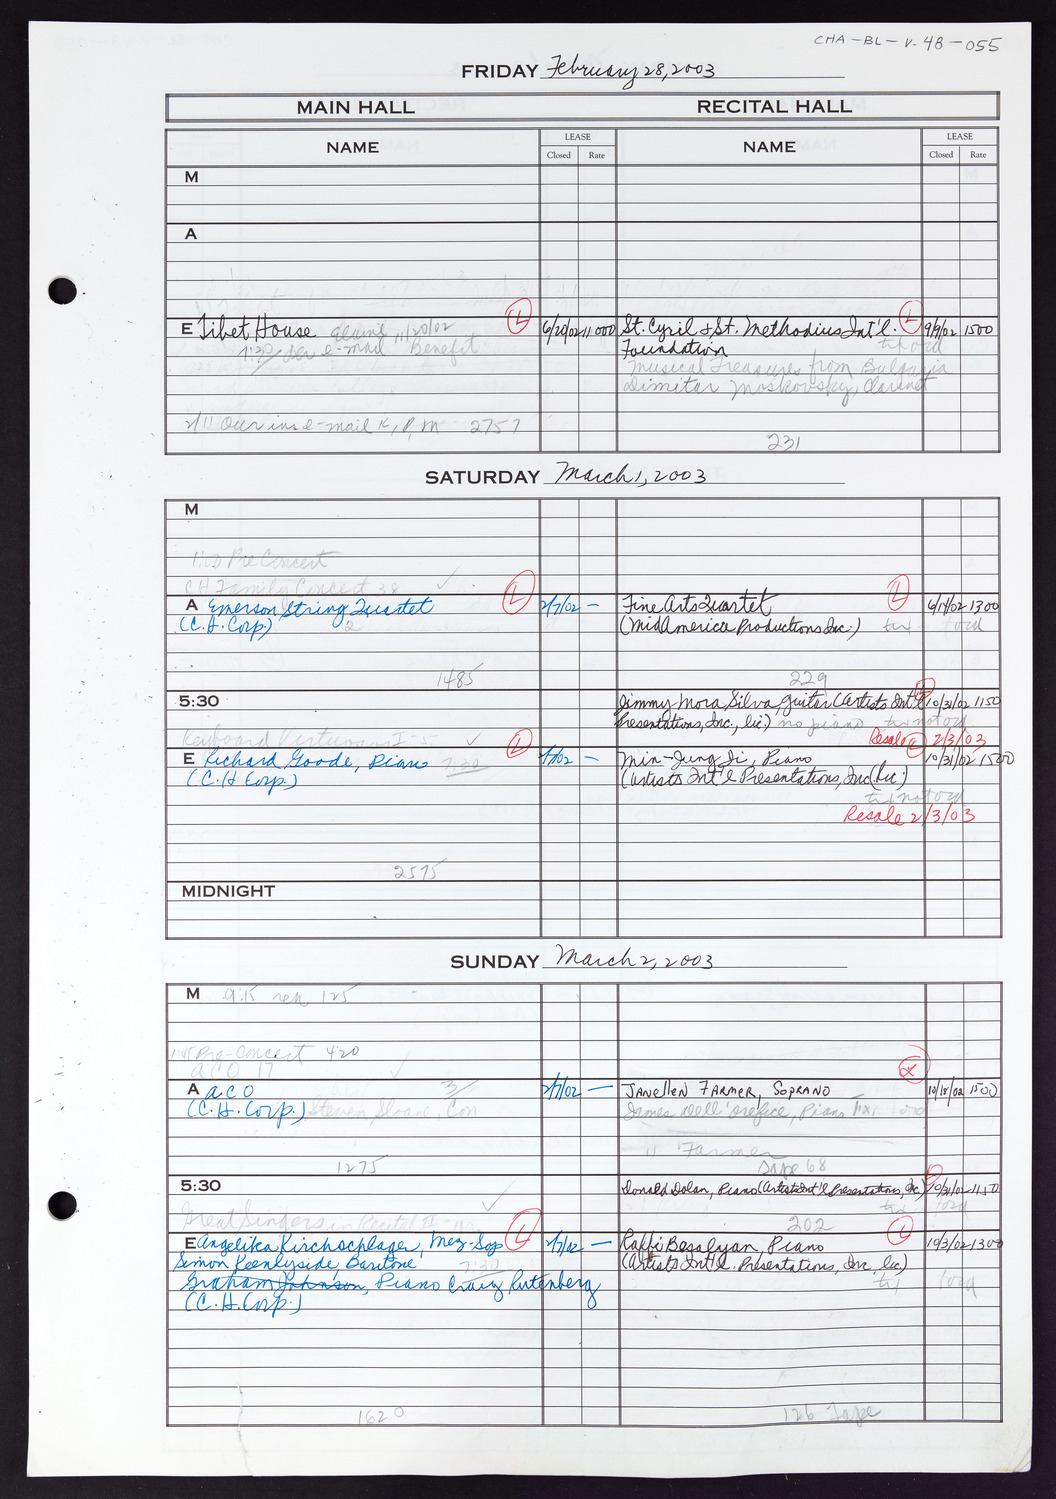 CHA-BL-V.48-055
FRIDAY February 28, 2003
MAIN HALL RECITAL HALL
NAME LEASE Closed Rate NAME LEASE Closed Rate
M
A
E Tibet House 11/20/02 L 6/20/02 11,000 St. Cyril & St. Methodius Int'l. L 9/9/02 1500
7:30 per e-mail Benefit Foundation
Musical Treasures from Bulgaria
Dimitar Moskovsky, Clarinet
2/11 Our ins e-mail K, P, M 2757
231
SATURDAY March 1, 2003
M
1:00 Pre Concert
CH Family Concert 38
A Emerson String Quartet L 2/7/02 — Fine Arts Quartet L 6/14/02 1300
(C.H. Corp) 2 (MidAmerica Productions Inc.)
1485 229
5:30 Jimmy Mora Silva, guitar (Artists Int'l 10/31/02 1150
Presentations, Inc., lic) no piano tix not ord
Keyboard Virtuosos I-5 L Resale L 2/3/03
E Richard Goode, Piano 7:30 2/7/02 — Min-Jung Ji, Piano 10/31/02 1500
(C.H Corp) (Artists Int'l Presentations, Inc (lic)
tix not ord
Resale 2/3/03
2575
MIDNIGHT
SUNDAY March 2, 2003
M 9:15 reh 125
1:45 Pre-Concert 420
ACO 17
A ACO 3/ 2/7/02 — Janellen Farmer, Soprano 10/18/02 1500
(C.H. Corp.) Steven Sloane, Con James Dell'orefice, Piano tix
Farmer
1275 68
5:30 Donald Dolan, Piano (Artists Int'l Presentations, Inc.) 10/31/02 1150
Great Singers in Recital II 202
E Angelika Kirchschlager, Mez-Sop L 2/7/02 — Raffi Besalyan, Piano L 10/3/02 1300
Simon Keenlyside, Baritone 7:30 (Artists Int'l. Presentations, Inc, lic)
Graham Johnson, Piano Craig Rutenberg
(C.H. Corp.)
1620 126 Tape